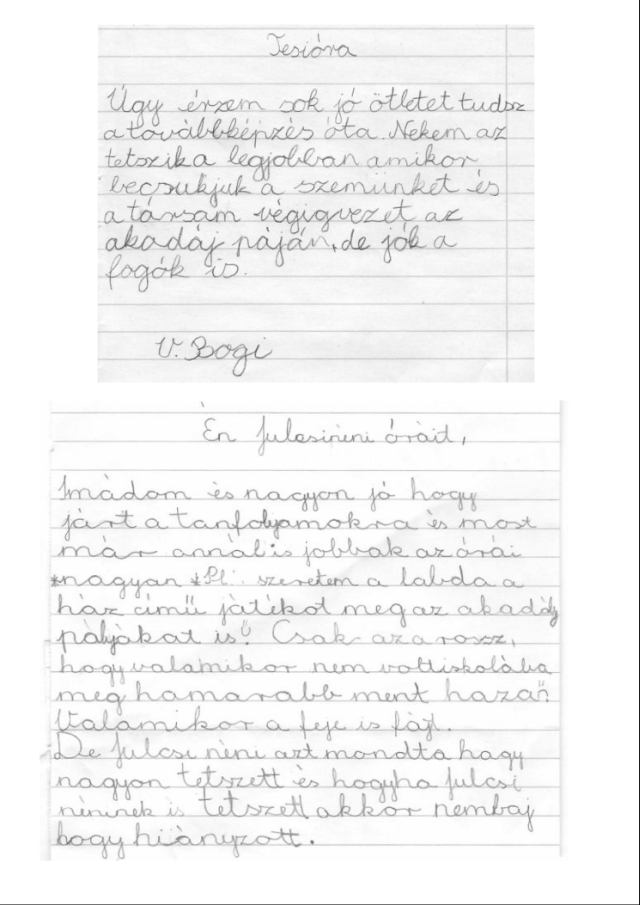 Tesióra
Úgy érzem sok jó ötletet tudsz
a továbbképzés óta. Nekem az
tetszik a legjobban amikor
becsukjuk a szemünket és
a társam végigvezet az
akadáj páján, de jók a
fogók is.
V. Bogi
Én Julcsinéni óráit,
Imádom és nagyon jó hogy
járt a tanfolyamokra és most
már annál is jobbak az órái
*nagyon *Pl: szeretem a labda a
ház című játékot meg az akadály
pályákat is! Csak az a rossz,
hogy valamikor nem volt iskolába
meg hamarabb ment haza
Valamikor a feje is fájt.
De Julcsi néni azt mondta hagy
nagyon tetszett és hogyha Julcsi
néninek is tetszett akkor nembaj
hogy hiányzott.